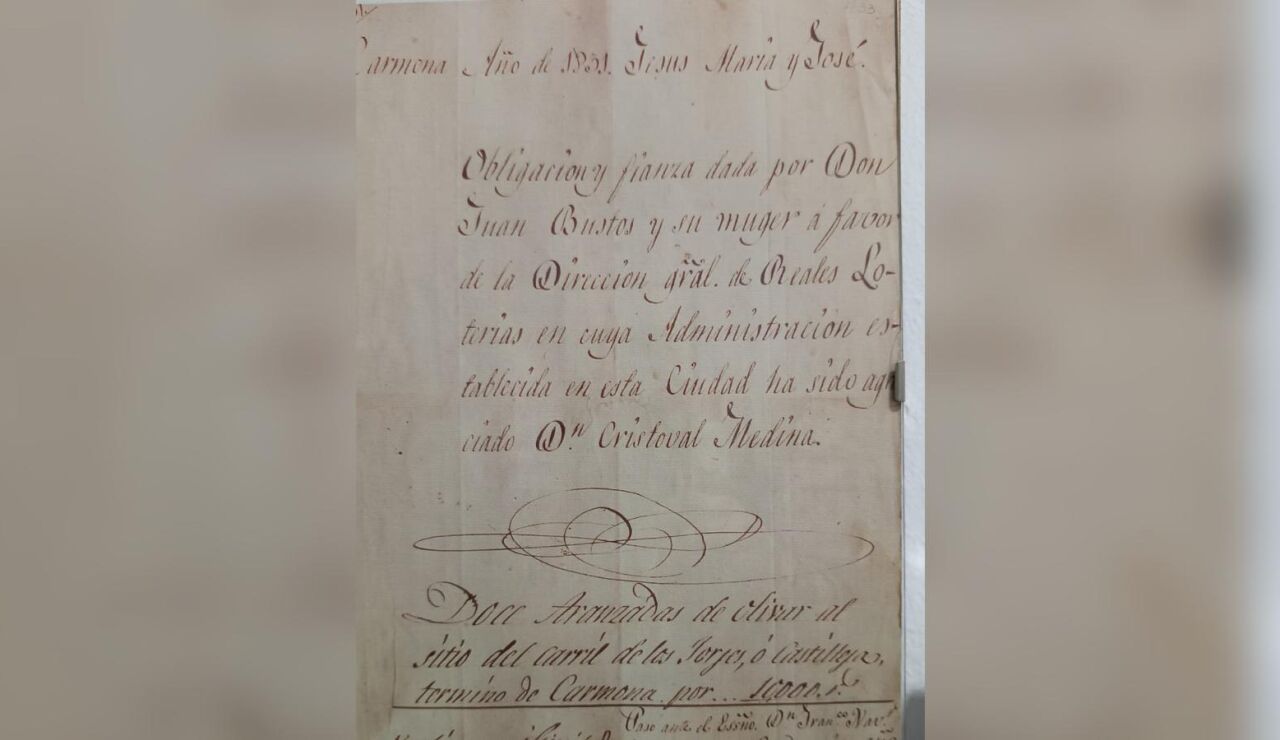 Carmona Año de 1831. Jesus Maria y José.
Obligacion y fianza dada por Don
Juan Bustos y su muger á favor
de la Direccion gr̃al. de Reales Lo-
terias en cuya Administracion es-
tablecida en esta Ciudad ha sido agra
ciado Dn. Cristoval Medina.
Doce Aranzadas de olivar al
sitio del Carril de los Jorjes, ó Castilleja,
termino de Carmona por... 10000.r.s
Paso ante el Essño. Dn. Franco. Nav.